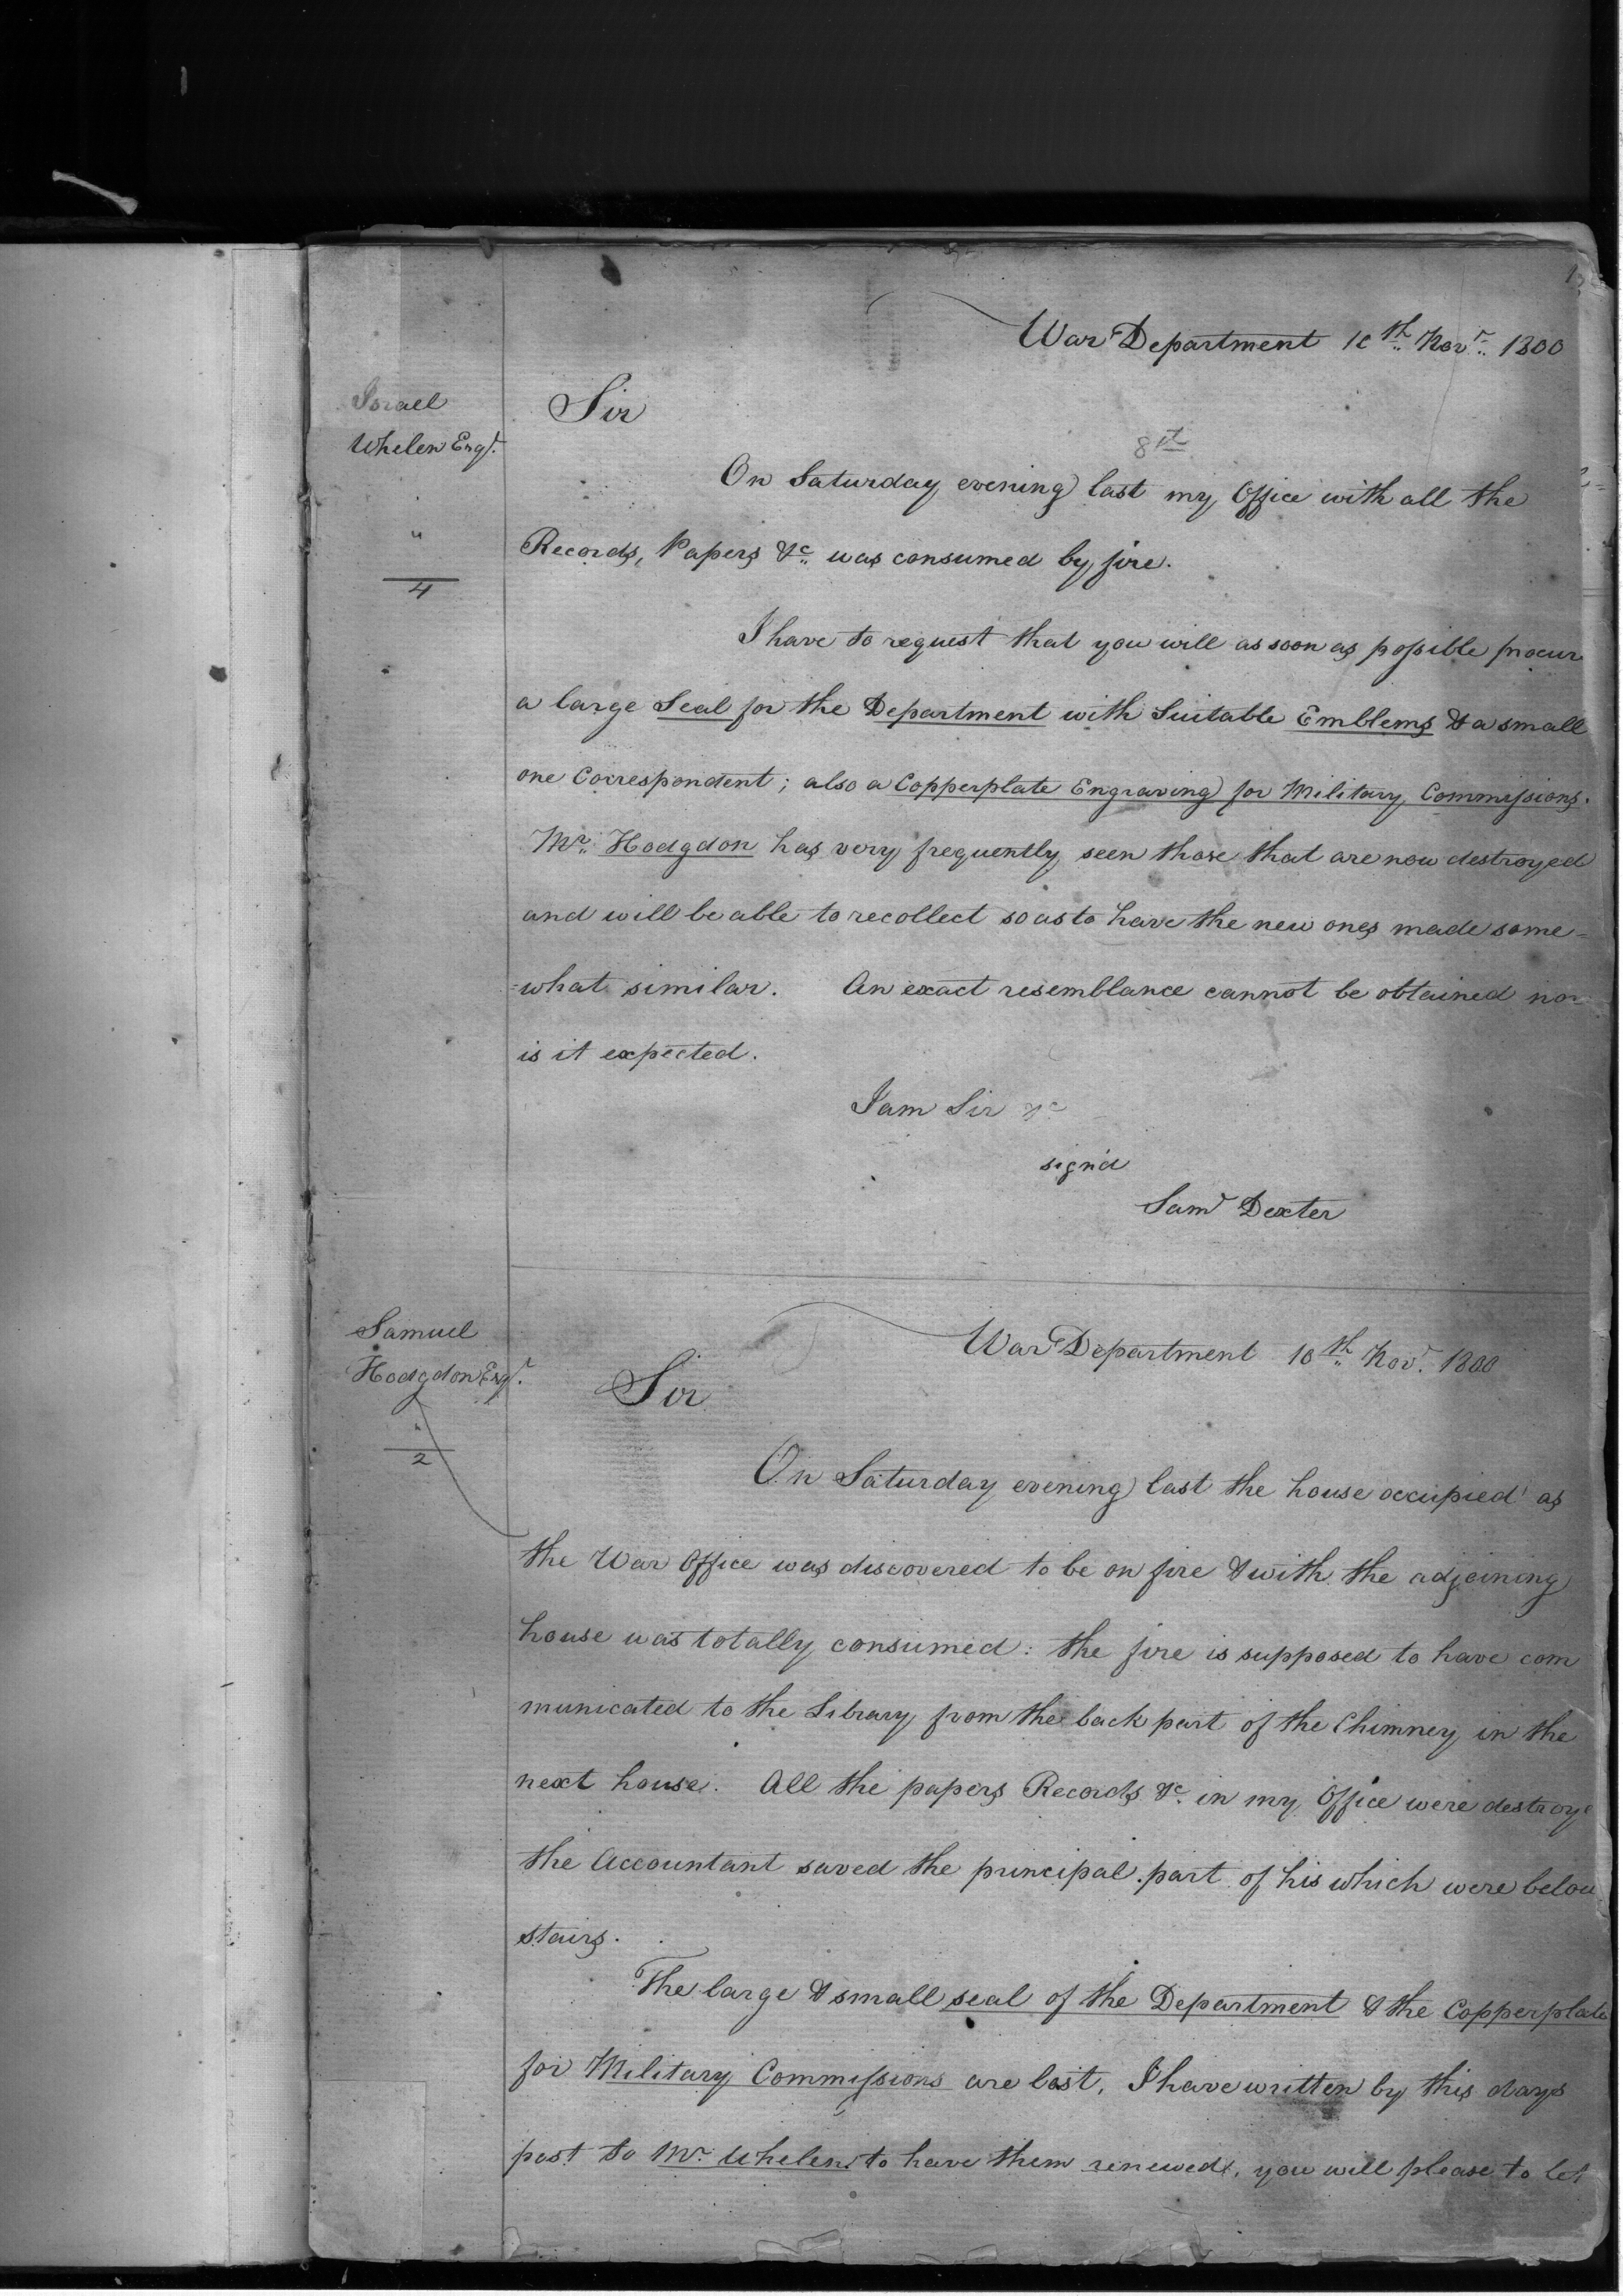 1
War Department 10th Novr. 1800
Israel
Whelen Esqr.
Sir
8th
On Saturday evening last my Office with all the
Records, Papers &c. was consumed by fire.
"
4
I have to request that you will as soon as possible procur
a large Seal for the Department with Suitable Emblems & a small
one Correspondent; also a Copperplate Engraving for Military Commissions.
Mr. Hodgdon has very frequently seen those that are now destroyed
and will be able to recollect so as to have the new ones made some=
=what similar. An exact resemblance cannot be obtained nor
is it expected.
I am Sir &c
sign'd
Saml Dexter
War Department 10th Novr. 1800
Samuel
Hodgdon Esqr.
Sir
"
2
On Saturday evening last the house occupied as
the War Office was discovered to be on fire & with the adjoining
house was totally consumed: the fire is supposed to have com
municated to the Library from the back part of the Chimney in the
next house. All the papers Records &c. in my Office were destroye
the Accountant saved the principal part of his which were below
stairs.
The large & small seal of the Department & the Copperplate
for Military Commissions are lost. I have written by this days
post to Mr. Whelen to have them renewed, you will please to let